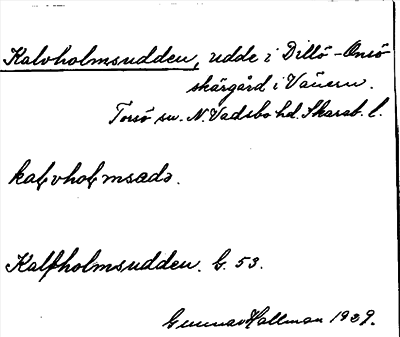 Kalvholmsudden, udde i Dillö-Onsö
skärgård i Vänern.
Torsö sn. N. Vadsbo hd. Skarab. l.
kaḷvhoḷmsədə.
Kalfholmsudden. G. 53.
Gunnar Hallman 1929.